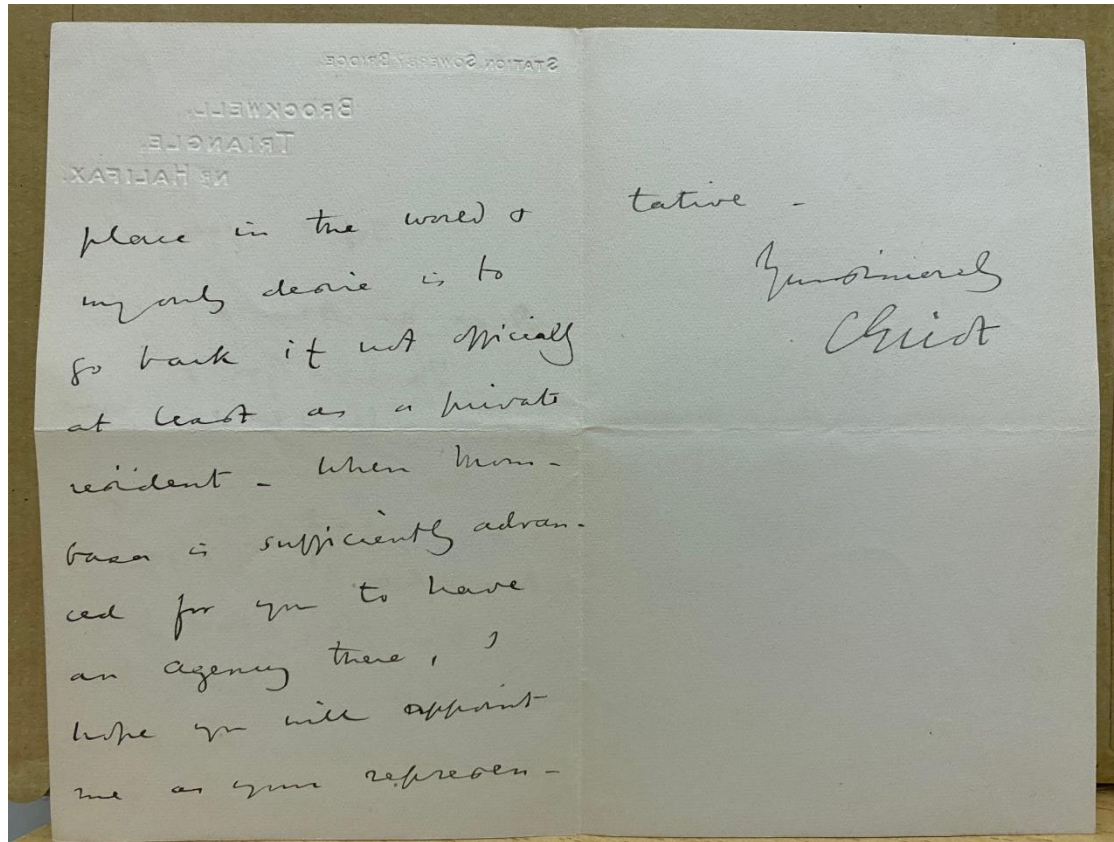 STATION, SOWERBY BRIDGE.
BROCKWELL,
TRIANGLE,
NR HALIFAX.
place in the world &
my only desire is to
go back if not officially
at least as a private
resident - When Mom-
basa is sufficiently advan-
ced for you to have
an agency there, I
hope you will appoint
me as your represen-
tative -
Yours sincerely
CEliot